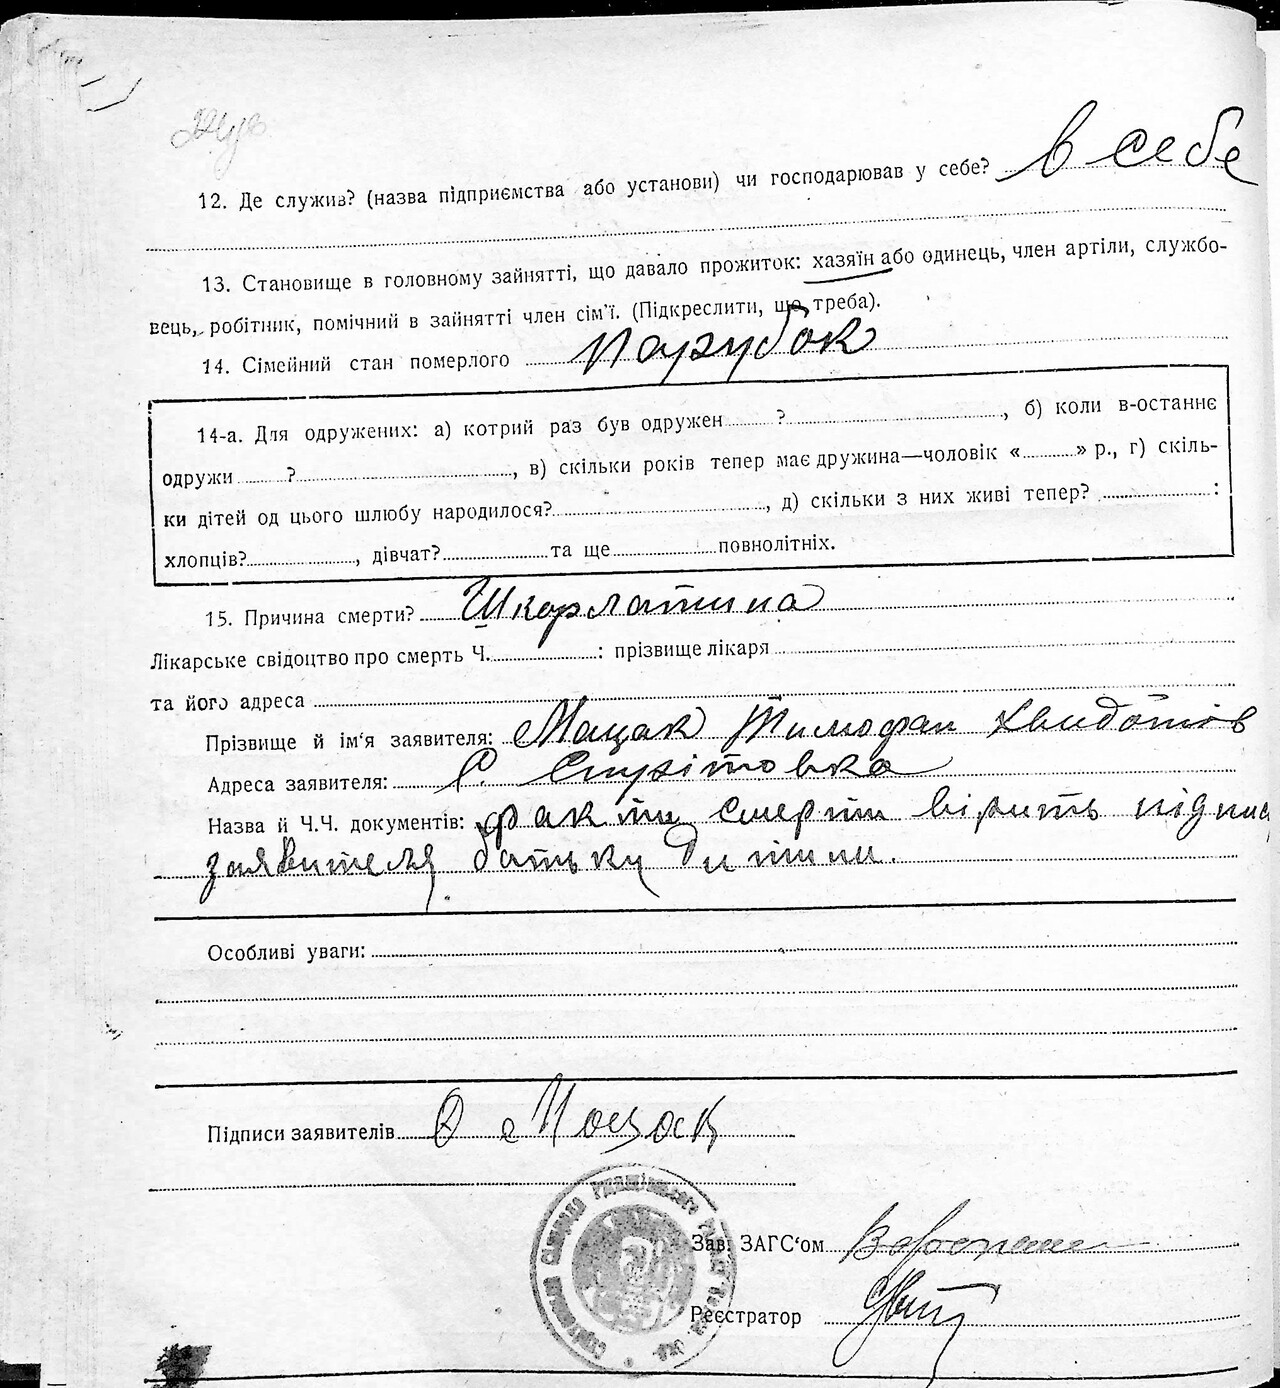 12. Де служив? (назва підприємства або установи) чи господарював у себе? в себе
13. Становище в головному зайнятті, що давало прожиток: хазяїн або одинець, член артіли, службо-
вець, робітник, помічний в зайнятті член сім'ї. (Підкреслити, що треба).
14. Сімейний стан померлого парубок
14-а. Для одружених: а) котрий раз був одружен ? , б) коли в-останнє
одружи ? , в) скільки років тепер має дружина—чоловік « » р., г) скіль-
ки дітей од цього шлюбу народилося? , д) скільки з них живі тепер? :
хлопців? , дівчат? та ще повнолітніх.
15. Причина смерти? Шкарлатина
Лікарське свідоцтво про смерть Ч. : прізвище лікаря
та його адреса
Прізвище й ім'я заявителя: Мацак Тимофан Хведотів
Адреса заявителя: С.
Назва й Ч.Ч. документів: факти смерти вірить підпис
заявителя батьку дитини.
Особливі уваги:
Підписи заявителів Мацак
Зав. ЗАГС'ом
Реєстратор